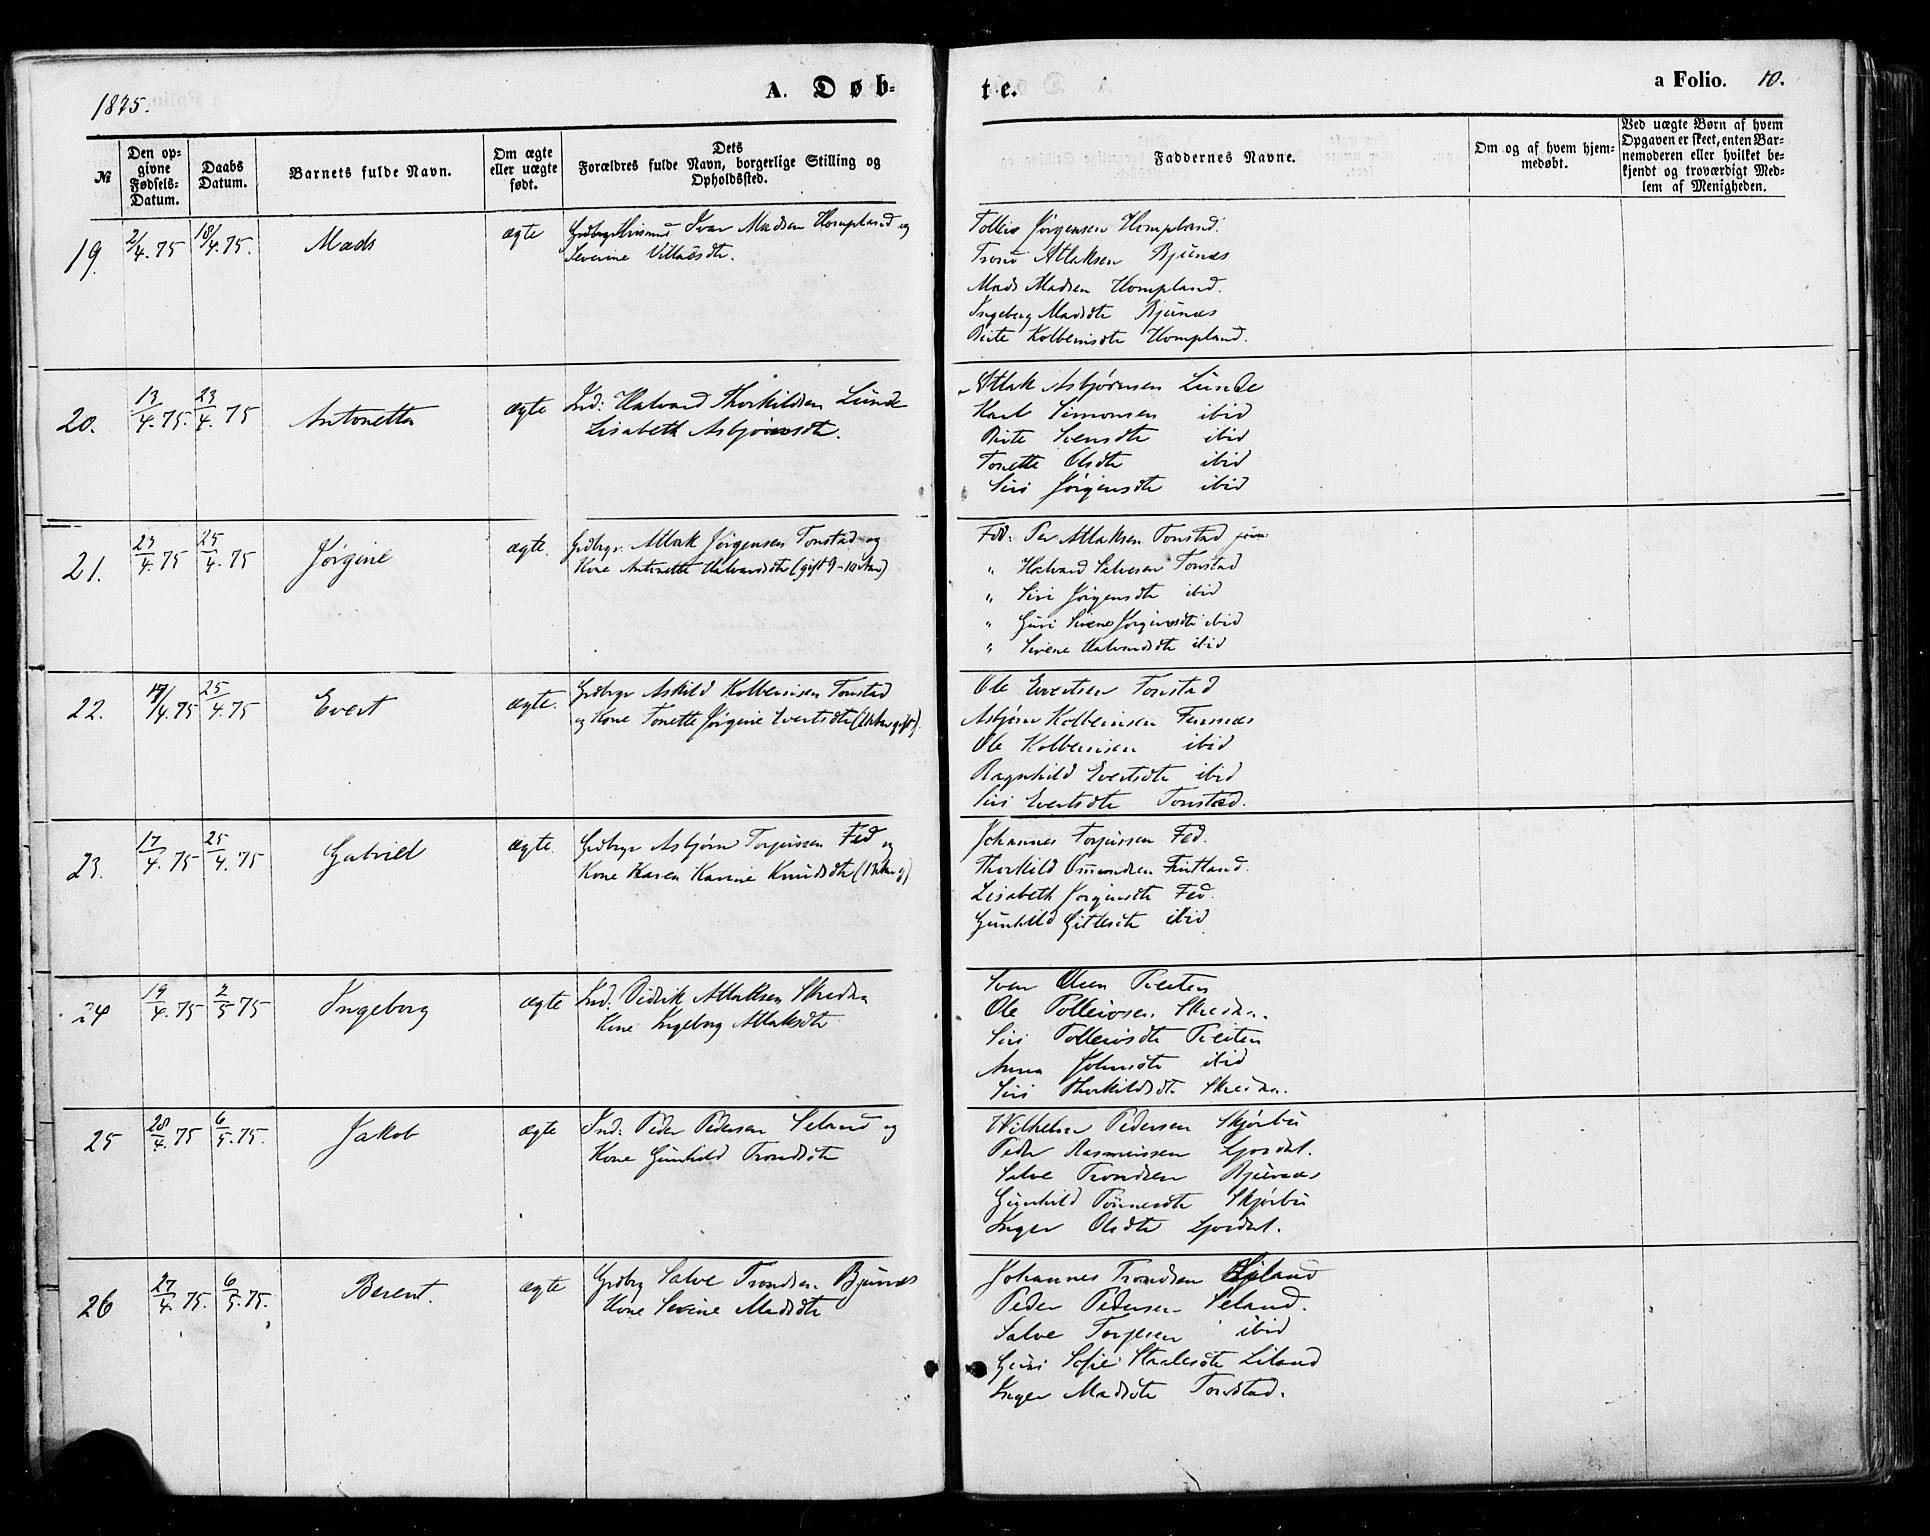 1875.
A. Døb-
te.
a Folio. 10.
№
Den opgivne Fødsels-Datum.
Daabs Datum.
Barnets fulde Navn.
Om ægte eller uægte født.
Dets Forældres fulde Navn, borgerlige Stilling og Opholdssted.
Faddernes Navne.
Om og af hvem hjemmedøbt.
Ved uægte Børn af hvem Opgaven er skeet, enten Barnemoderen eller hvilket bekjendt og troværdigt Medlem af Menigheden.
19. 2/4.75 18/4.75. Mads ægte Ivar Madsen Hompland og
Severine
Tolleiv Jørgensen Hompland.
Trond Atlaksen Bjunes
Mads Madsen Hompland.
Ingeborg Madsdtr Bjunes
Birte Kolbeinsdtr Hompland.
20. 13/4.75. 23/4.75 Antonetta ægte Ind: Halvard Thorkildsen Lunde
Lisabeth Asbjørnsdtr.
Atlak Asbjørnsen Lunde
Karl Simonsen ibid
Birte Svensdtr ibid
Tonette Olsdtr ibid
Siri Jørgensdtr ibid
21. 23/4.75 25/4.75 Jørgine ægte. Grdbrgr Atlak Jørgensen Tonstad og
Kone Antonette Halvardsdtr (gift 9-10
Fdd: Per Atlaksen Tonstad
" Halvard Salvesen Tonstad
" Siri Jørgensdtr ibid
" Guri Sirene Jørgensdtr ibid
" Sirene Halvardsdtr ibid
22. /4.75 25/4.75 Evert ægte. Grdbrgr Askild Kolbeinsen Tonstad
og Kone Tonette Jørgine Evertsdtr
Ole Evertsen Tonstad
Asbjørn Kolbeinsen
Ole Kolbeinsen ibid
Ragnhild Evertsdtr ibid
Siri Evertsdtr Tonstad.
23. 17/4.75 25/4.75 Gabriel ægte. Grdbrgr Asbjørn Torjussen Fed og
Kone Karen Karine Knudsdtr
Johannes Torjussen Fed.
Thorkild Omundsen Fintland.
Lisabeth Jørgensdtr Fed.
Gunhild Gitlesdtr ibid
24 19/4.75 2/5 75 Ingeborg ægte Ind: Didrik Atlaksen
Kone Ingeborg Atlaksdtr
Sven Olsen
Ole Tolleivsen
Siri Tolleivsdtr
Anna Johnsdtr ibid
Siri Thorkildsdtr
25 28/4.75 6/5.75. Jakob ægte Ind: Peder Pedersen Seland og
Kone Gunhild Trondsdtr
Wilhelm Pedersen Skjørbu
Peder Rasmussen
Salve Trondsen Bjunes
Gunhild Tønnesdtr Skjørbu
Inger Olsdtr
26 27/4.75. 6/5.75. Berent. ægte Grdbrg Salve Trondsen Bjunes
Kone Sevine Madsdtr
Johannes Trondsen
Peder Pedersen Seland.
Salve Torjesen ibid
Guri Sofie Staalesdtr
Inger Madsdtr Tonstad.